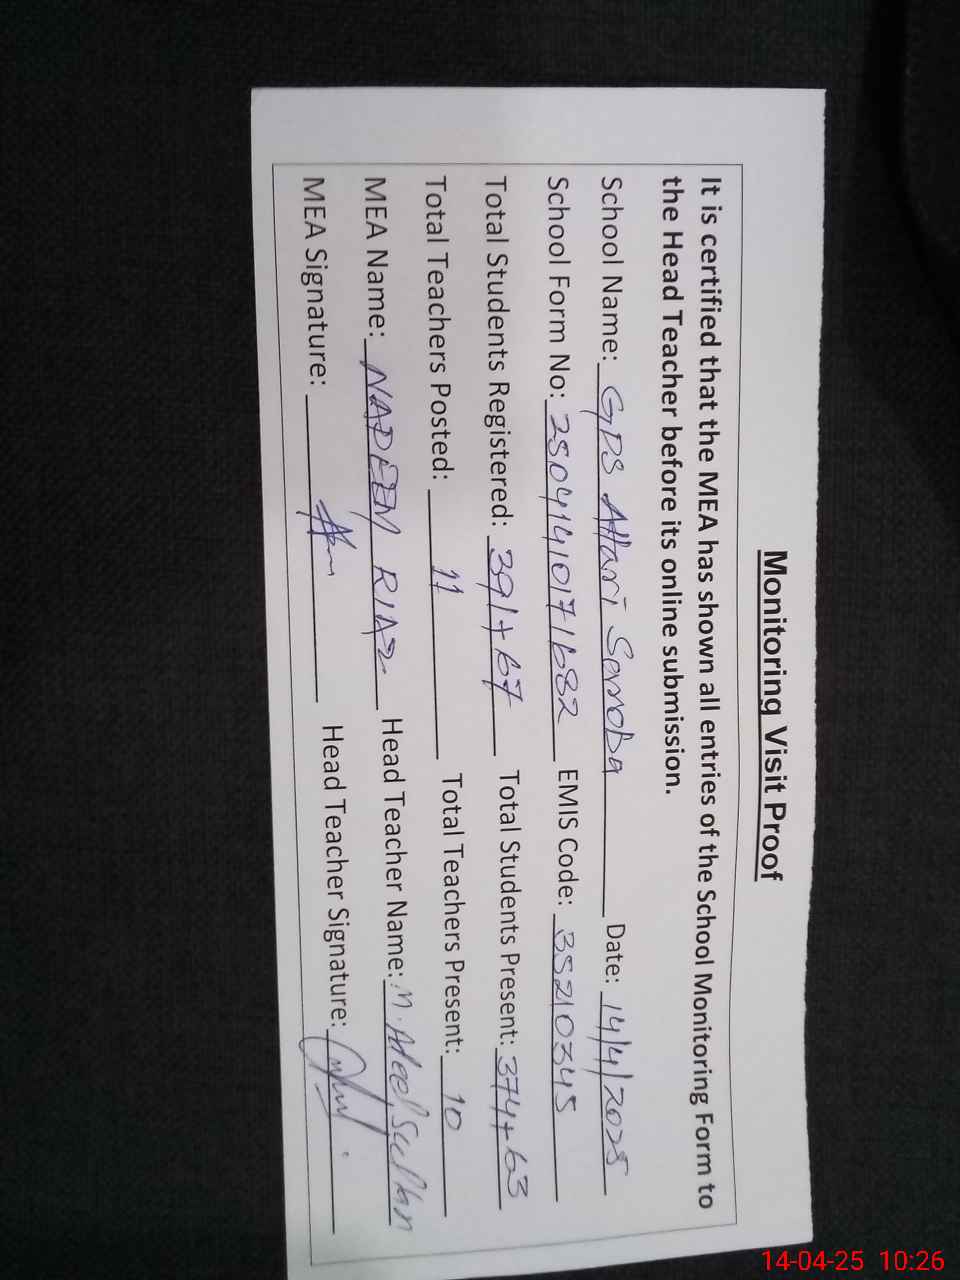 Monitoring Visit Proof
It is certified that the MEA has shown all entries of the School Monitoring Form to
the Head Teacher before its online submission.
School Name: GPS Attari Saroba Date: 14/4/2025
School Form No: 25041410171682 EMIS Code: 35210345
Total Students Registered: 391+67 Total Students Present: 374+63
Total Teachers Posted: 11 Total Teachers Present: 10
MEA Name: NADEEM RIAZ Head Teacher Name: M. Adeel Sultan
MEA Signature: Head Teacher Signature:
14-04-25 10:26